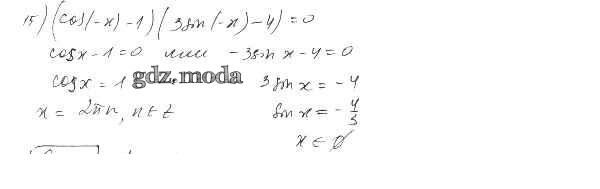 15) (cos(-x)-1)(3sin(-x)-4)=0
cosx-1=0 или -3sin x-4=0
cosx=1 gdz.moda 3sinx=-4
x=2πn, n∈z sinx=-4/3
x∈∅